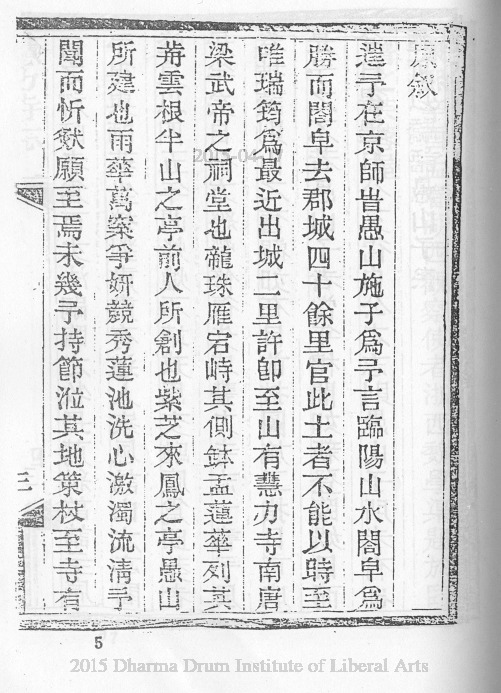 原敘
予在京師旹愚山施子爲予言臨陽山水閤皁爲
勝而閤皁去郡城四十餘里官此土者不能以時至
唯瑞筠爲最近出城二里許卽至山有慧力寺南唐
梁武帝之祠堂也龍珠雁宕峙其側鉢盂蓮華列其
前雲根半山之亭前人所創也紫芝來鳳之亭愚山
所建也雨華萬案爭妍競秀蓮池洗心激濁流清予
聞而忻然願至焉未幾予持節涖其地策杖至寺有
三
5
2015 Dharma Drum Institute of Liberal Arts